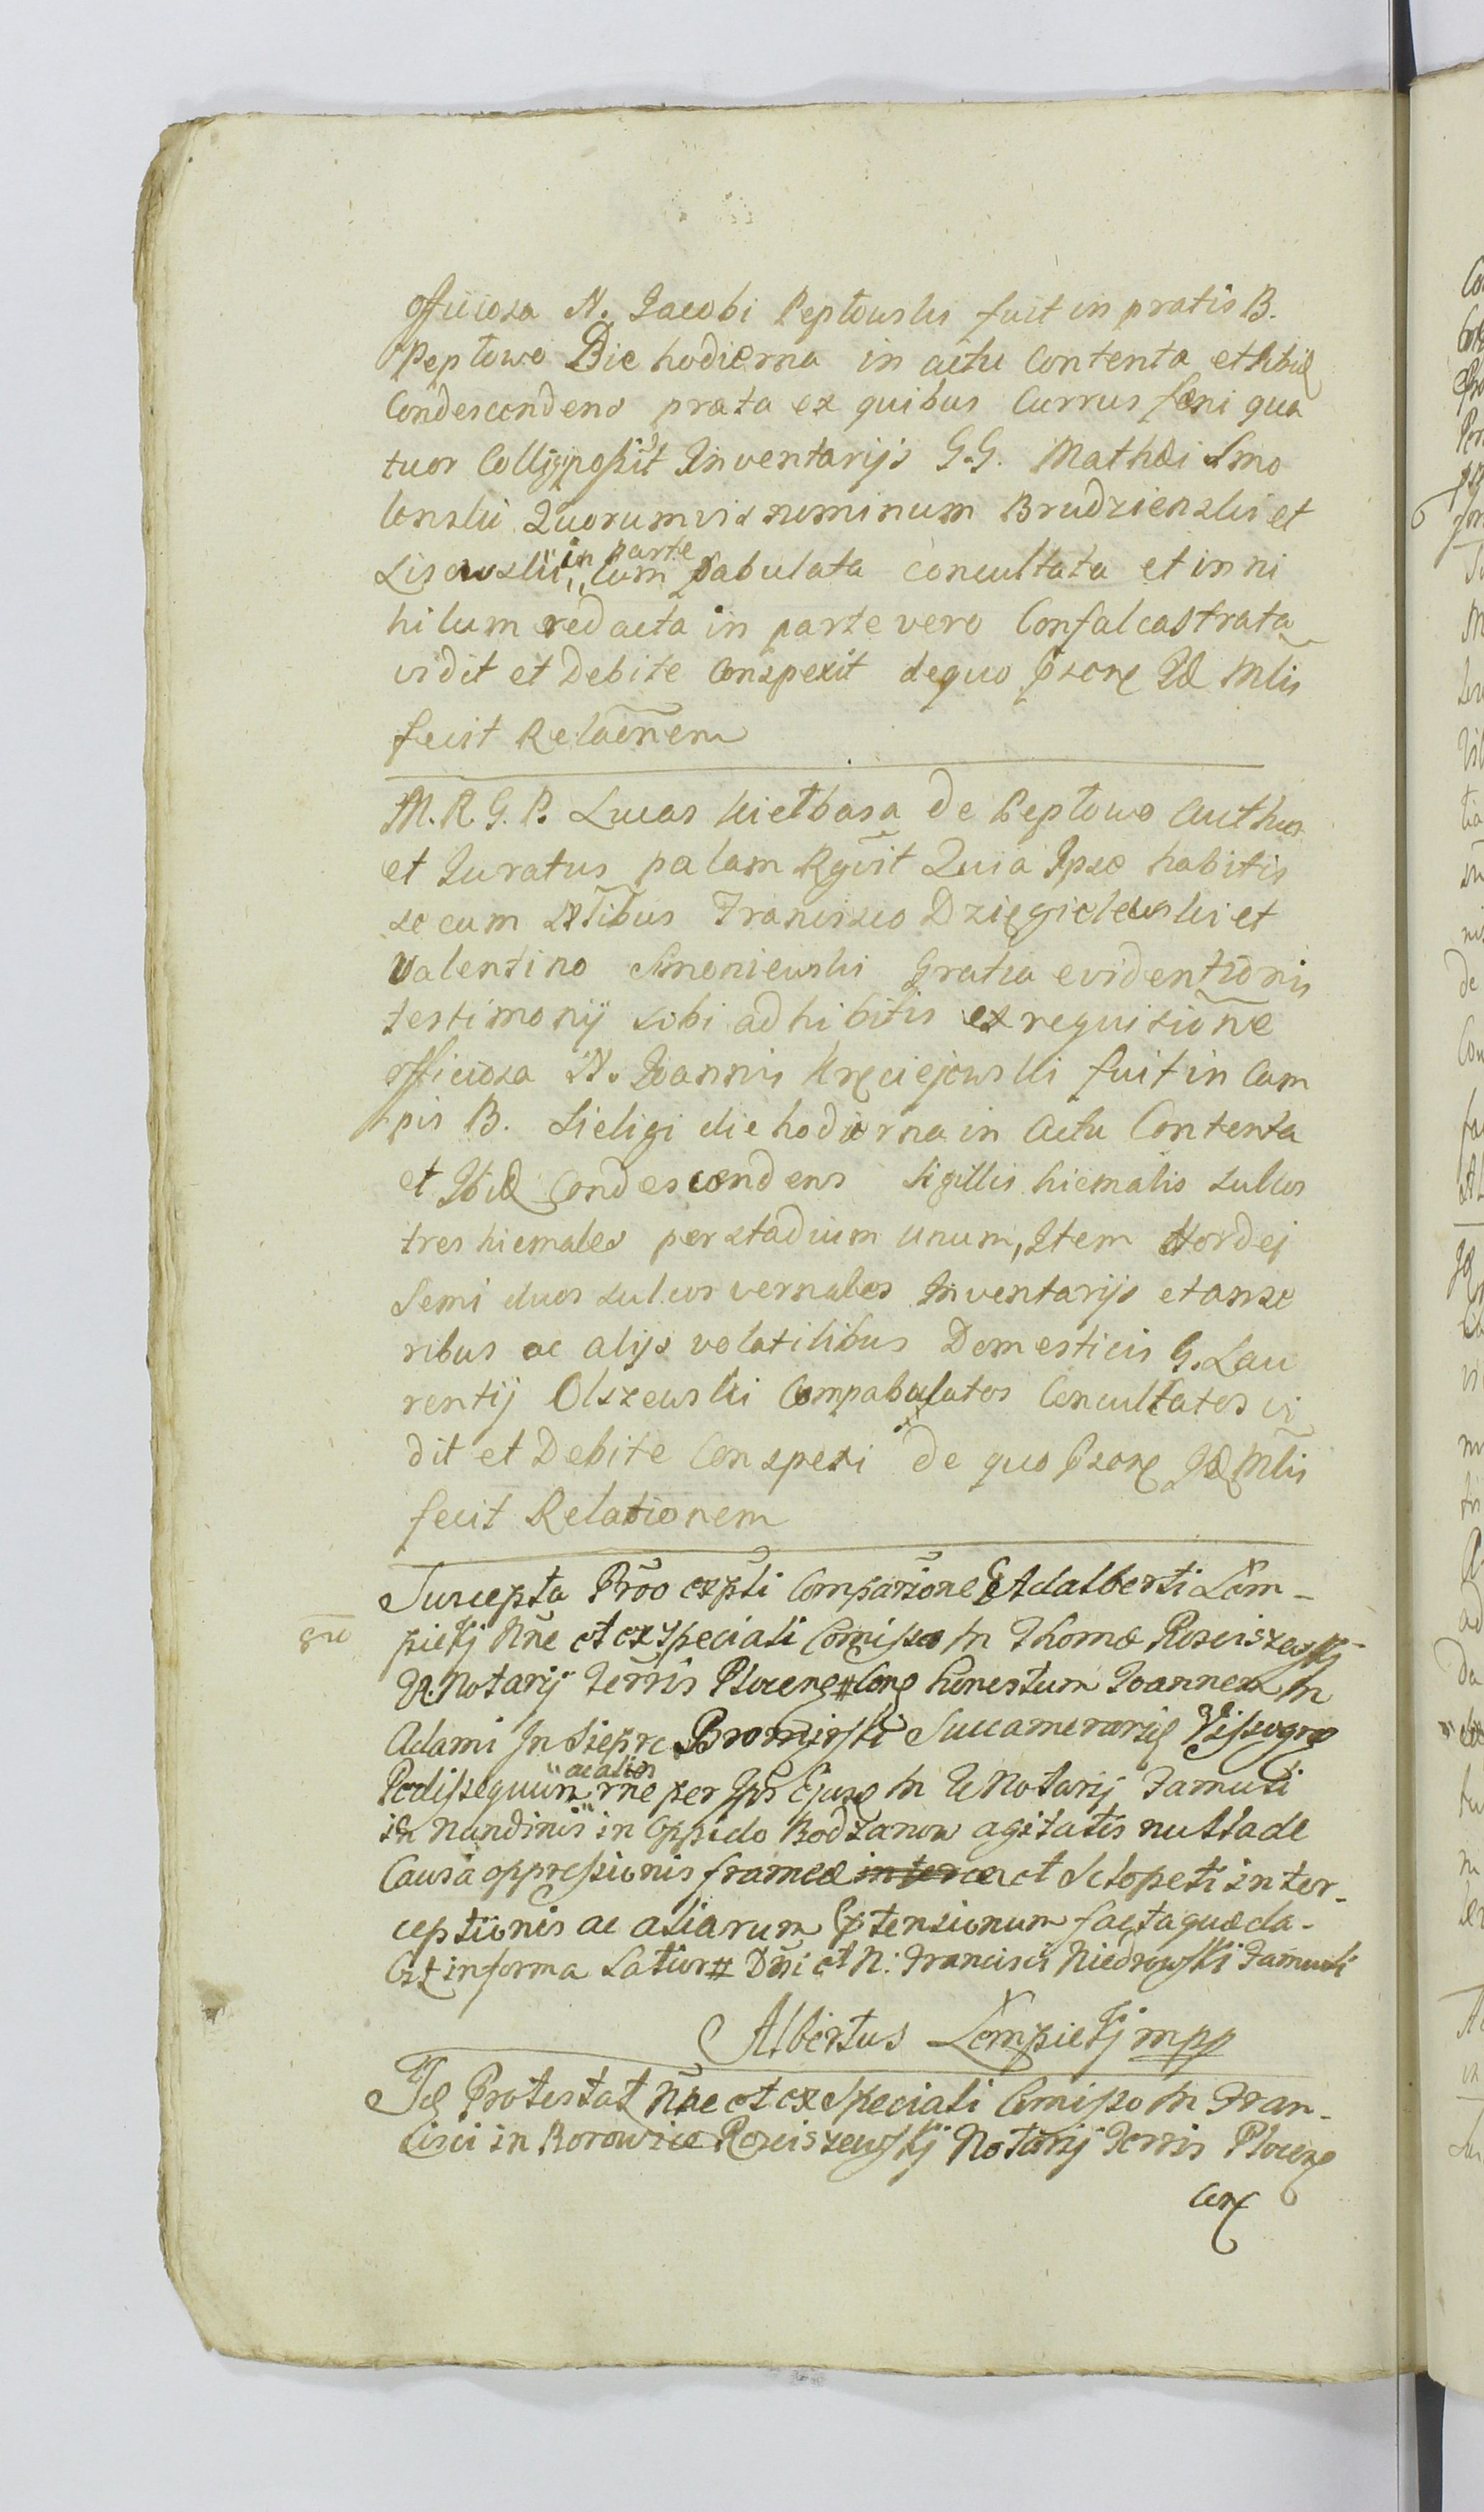 officiosa N. Jacobi Peptowski fuit in pratis B.
Peptowo Die hodierna in actu Contenta et Ibid
Condescendens prata ex quibus Currus feni qua
tuor Colligi possit Inventarijs G.G. Mathæi Smo
lenski Quorumvis nominum Brudzienski et
Lisowski in parte Com pabulata conculta et in ni
hilum redacta in parte vero Confalcastrata
vidit et Debite Conspexit de quo Id Mlis
fecit Relaōnem
M. R. G. P. Lucas Kiełbasa de Peptowo Authus
et Juratus palam Rgvit Quia Ipse habitis
secum Nlibus Francisco Dzięgielewski et
Valentino Smoniewski Gratia evidentioris
testimonij sibi adhibitis ex requisitiōne
officiosa N. Joannis Kręciejewski fuit in Cam
pis B. Sieligi die hodierna in Actu Contenta
et Ibid Condescendens Sigillis hiemalis sulcos
tres hiemales per stadium unum, Item Hordej
Semi duos sulcos vernales Inventarijs et anse
ribus ac alijs volatilibus Domesticis G. Lau
rentij Olszewski Compabulatos Concultatos vi
dit et Debite Conspexi de quo Id Mlis
fecit Relationem
Suscepta Prōo expli Comparitōne G Adalberti Łem-
picKij Nne et ex speciali Comisso M Thomæ Rosciszewskij
V. Notarij Terris Plocens # Cong honestum Joannem M
Adami In Sieprc Bromirski Succamerarij Vissogro
Pedissequum ac alios rne per Ipm Ejusd M V Notarij Famuli
in Nundinis in Oppido Bodzanow agitatis nulla de
Causa oppressionis frameæ interce et Sclopeti inter-
ceptionis ac aliarum Ptensionum facta quæda-
Est in forma Latior # Dni et N: Francisci Niedrowski Famuli
Albertus Łempickij mpp
Id Protestat Nne et ex Speciali Comisso M Fran-
cisci in Borowice Rosciszewskij Notarij Terris Plocens
Con